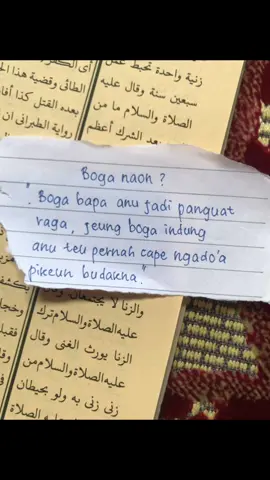 زنية واحدة تحبط عمل
سبعين سنة وقال عليه
الصلاة والسلام ما من
الشرك أعظم
أى الكفر
الطائى وقضية هذا
بعده القتل كذا
رواية الطبرانى
Boga naon?
"Boga bapa anu jadi panguat
raga, jeung boga indung
anu teu pernah cape ngado'a
pikeun budakna."
والزنا لا يجتمعان
عليه الصلاة والسلام
الزنا يورث الغنى وقال
عليه الصلاة والسلام من
زنى زنى به ولو بحيطان
عليه الصلاة